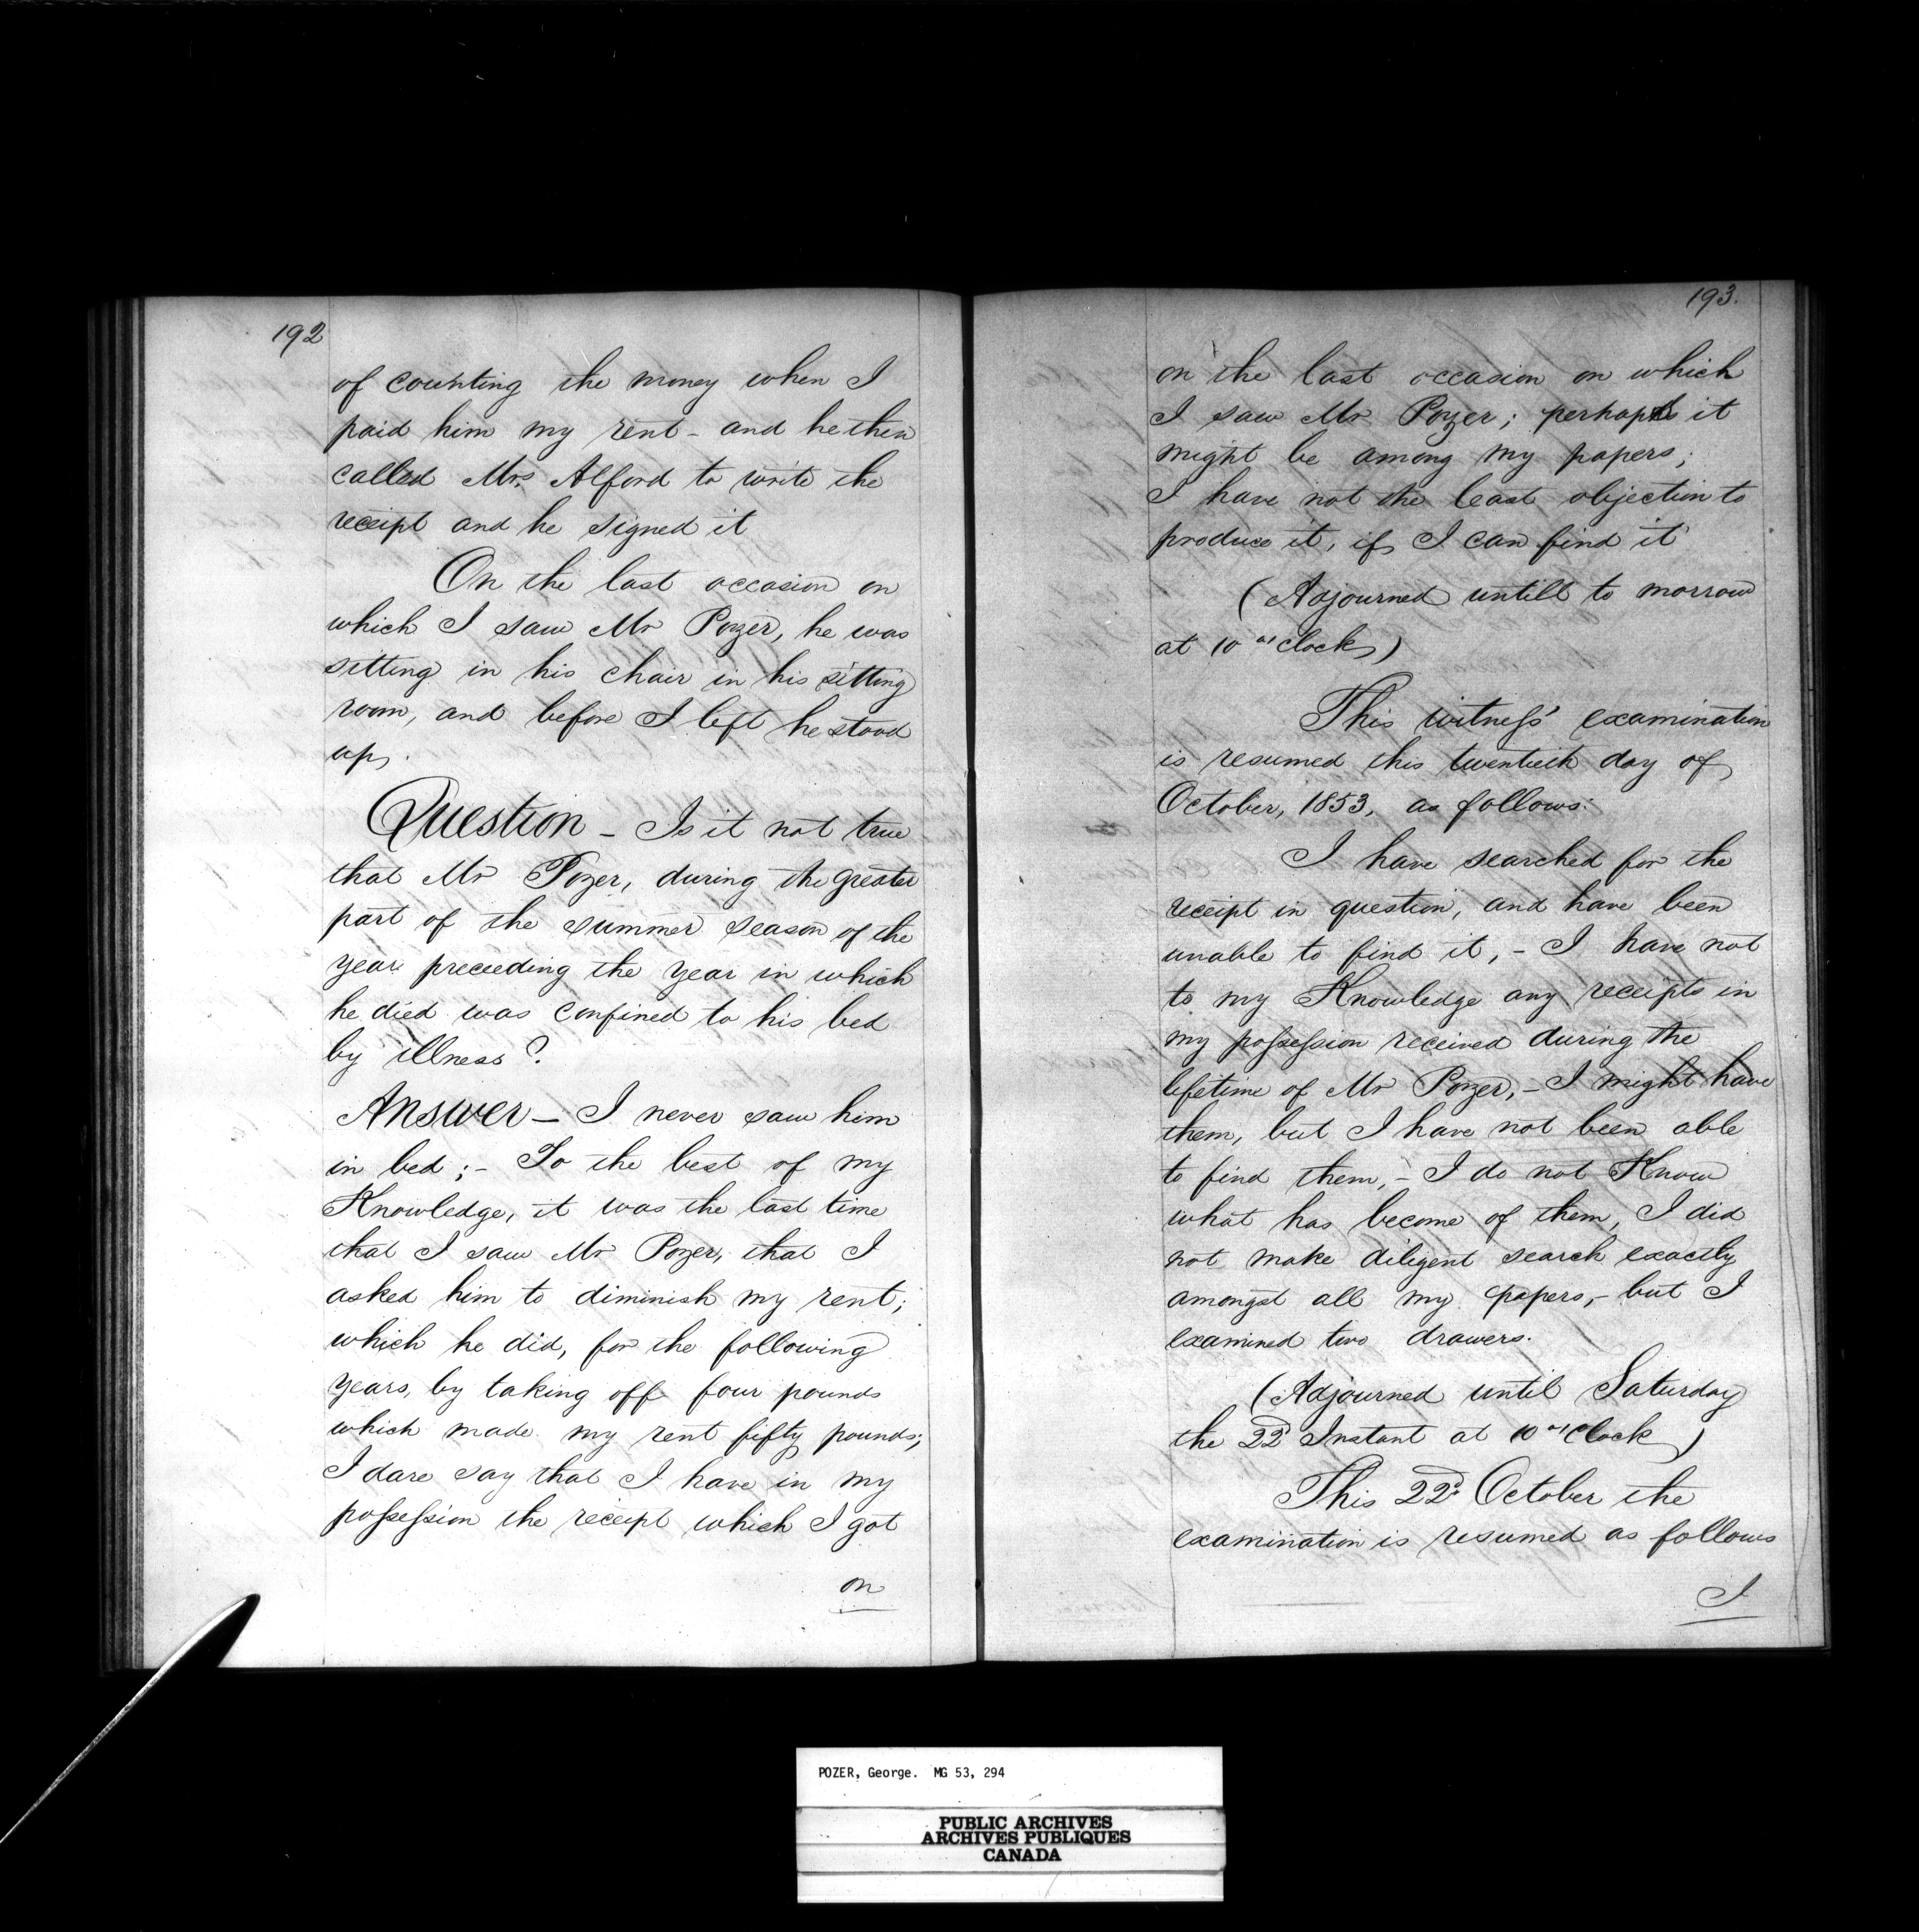 192
of counting the money when I
paid him my rent - and he then
called Mrs Alford to write the
receipt and he signed it
On the last occasion on
which I saw Mr Pozer, he was
sitting in his chair in his sitting
room, and before I left he stood
up.
Question - Is it not true
that Mr Pozer, during the greater
part of the summer season of the
year preceeding the year in which
he died was confined to his bed
by illness?
Answer - I never saw him
in bed; - To the best of my
Knowledge, it was the last time
that I saw Mr Pozer, that I
asked him to diminish my rent;
which he did, for the following
years, by taking off four pounds
which made my rent fifty pounds;
I dare say that I have in my
possession the receipt which I got
on
193.
on the last occasion on which
I saw Mr Pozer; perhaps it
might be among my papers;
I have not the least objection to
produce it, if I can find it
(Adjourned untill to morrow
at 10 o'clock)
This witness' examination
is resumed this twentieth day of
October, 1853, as follows:
I have searched for the
receipt in question, and have been
unable to find it, - I have not
to my Knowledge any receipts in
my possession received during the
lifetime of Mr Pozer, - I might have
them, but I have not been able
to find them, - I do not Know
what has become of them, I did
not make diligent search exactly
amongst all my papers, - but I
examined two drawers.
(Adjourned until Saturday
the 22d Instant at 10 o'Clock)
This 22d October the
examination is resumed as follows
I
POZER, George. MG 53, 294
PUBLIC ARCHIVES
ARCHIVES PUBLIQUES
CANADA